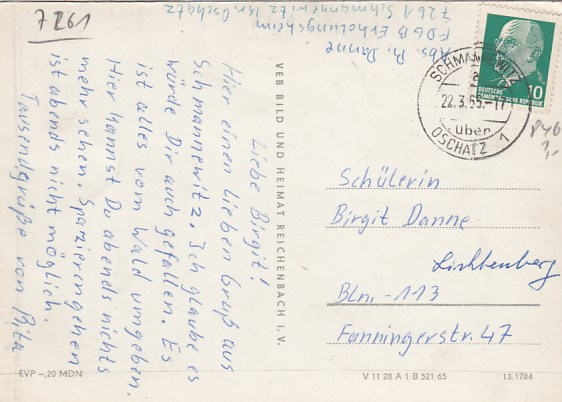 7261
Abs. R. Danne
FDGB Erholungsheim
7261 Schmannewitz Kr. Oschatz
Liebe Birgit!
Hier einen lieben Gruß aus
Schmannewitz. Ich glaube es
würde Dir auch gefallen. Es
ist alles vom Wald umgeben.
Hier kannst Du abends nichts
mehr sehen. Spazierengehen
ist abends nicht möglich.
Tausendgrüße von Rita
VEB BILD UND HEIMAT REICHENBACH I. V.
SCHMANNEWITZ
a
22.3.65.-17
über
OSCHATZ 1
10
DEUTSCHE
DEMOKRATISCHE REPUBLIK
Schülerin
Birgit Danne
Lichtenberg
Bln.-113
Fanningerstr. 47
EVP -,20 MDN
V 11 28 A 1 B 521/65
13/1784